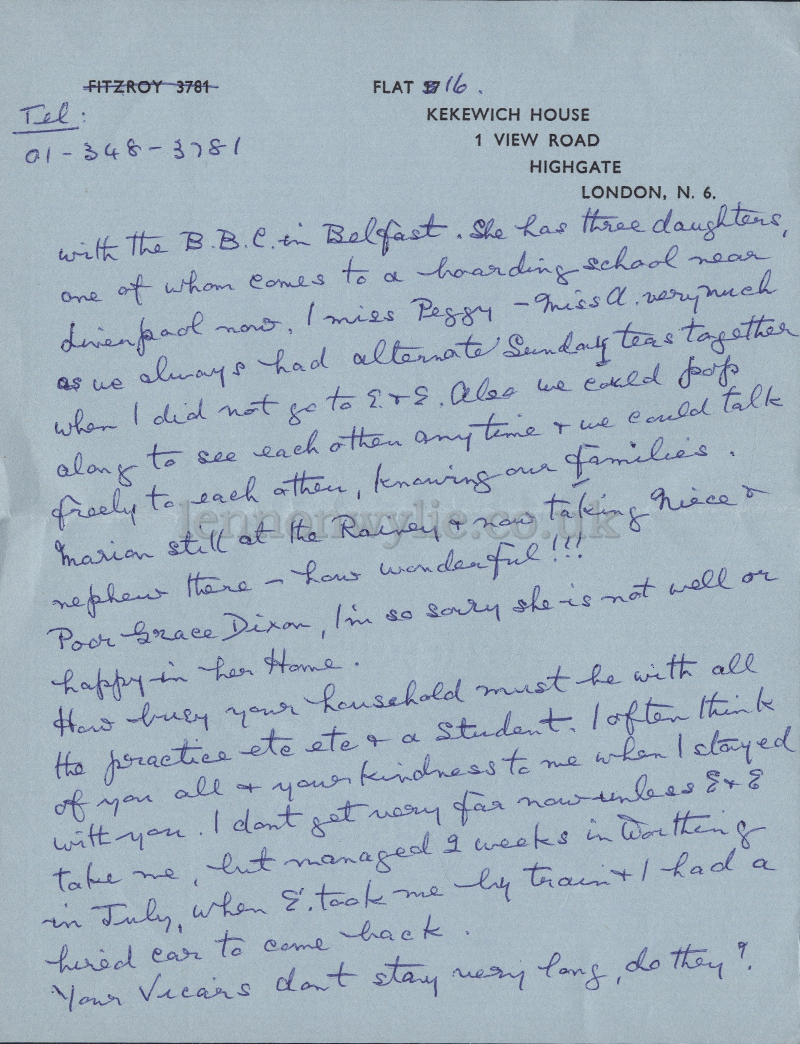 FITZROY 3781
FLAT 16.
KEKEWICH HOUSE
1 VIEW ROAD
HIGHGATE
LONDON, N. 6.
Tel:
01-348-3781
with the B.B.C. in Belfast. She has three daughters,
one of whom comes to a boarding school near
Liverpool now. I miss Peggy - Miss A. very much
as we always had alternate Sunday teas together
when I did not go to E & E. Also we could pop
along to see each other any time & we could talk
freely to each other, knowing our families.
Marion still at the Rainey & now taking Niece &
nephew there - how wonderful!!!
Poor Grace Dixon, I'm so sorry she is not well or
happy in her Home.
How busy your household must be with all
the practice etc etc & a student. I often think
of you all & your kindness to me when I stayed
with you. I dont get very far now unless E & E
take me, but managed 2 weeks in Worthing
in July, when E. took me by train & I had a
hired car to come back.
Your Vicars dont stay very long, do they?
lennonwylie.co.uk